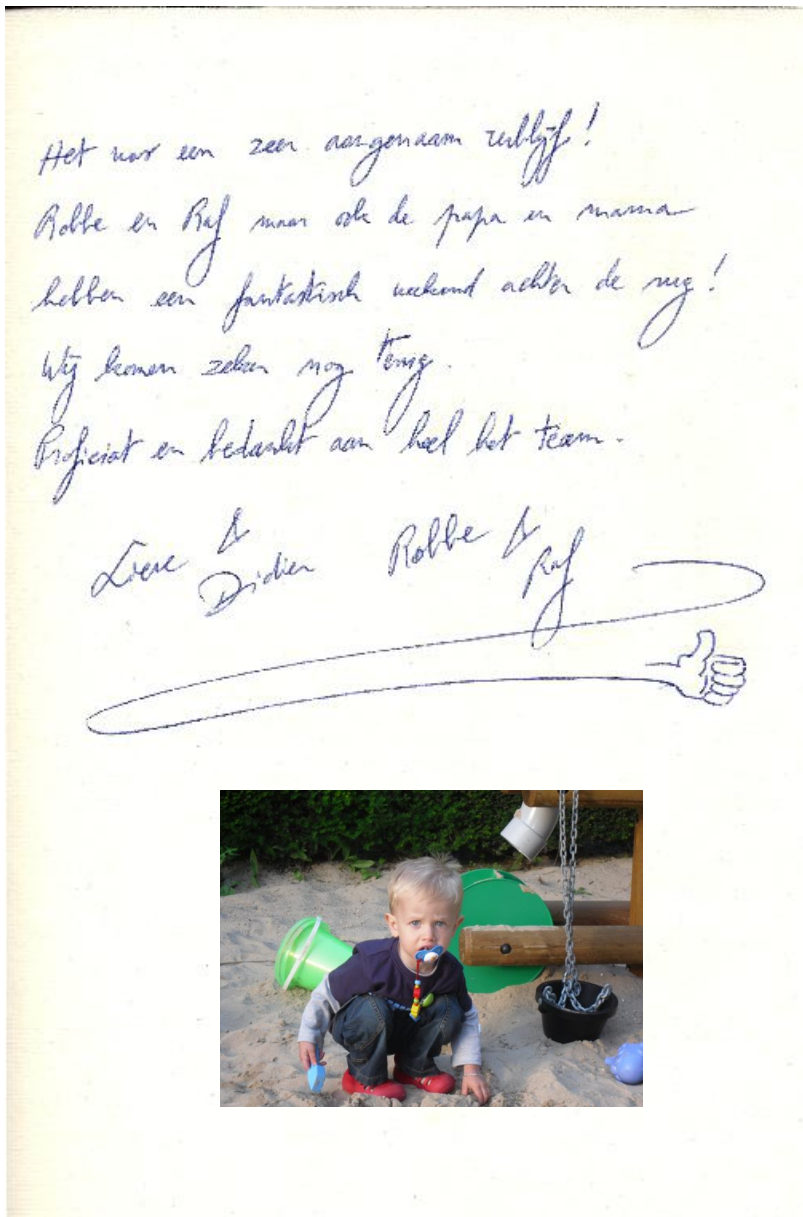 Het was een zeer aangenaam verblijf!
Robbe en Raf maar ook de papa en mama
hebben een fantastisch weekend achter de rug!
Wij komen zeker nog terug.
Proficiat en bedankt aan heel het team.
Lieve & Didier Robbe & Raf